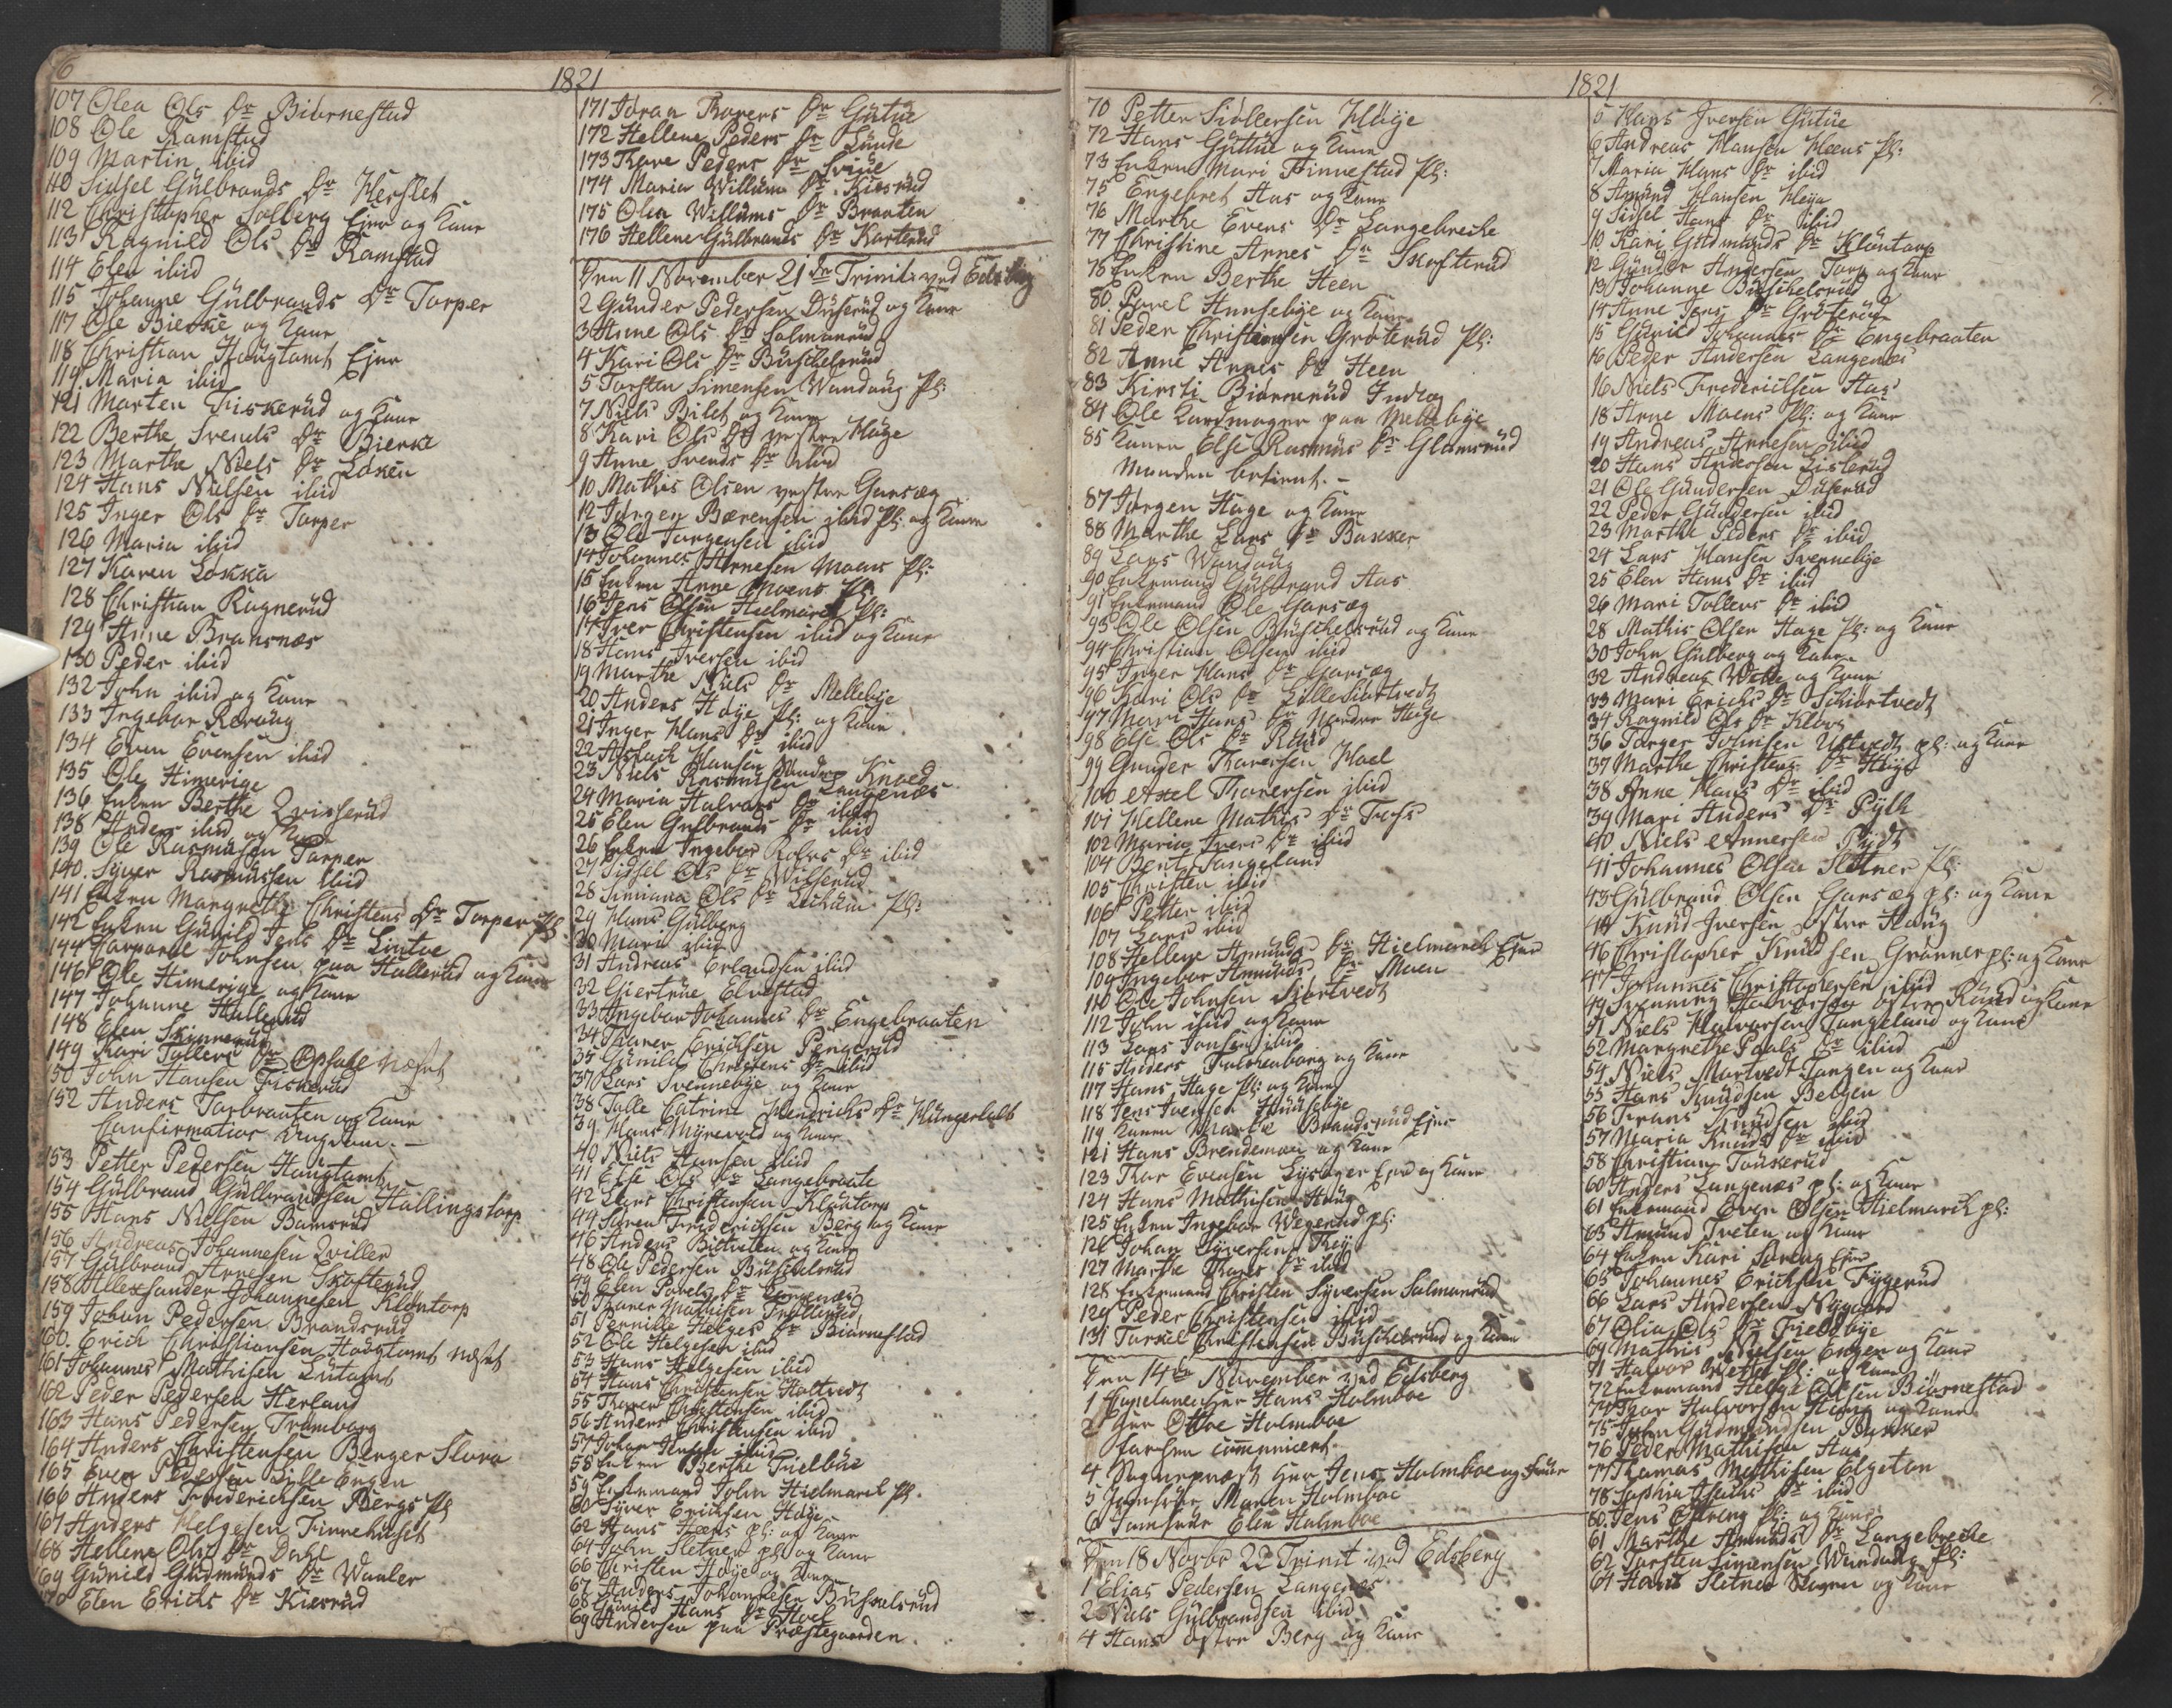 6
1821
107 Olea Ols Dr Biörnestad
108 Ole Ramstad
109 Martin ibid
110 Sidsel Gülbrands Dr Herslet
112 Christopher Solberg Ejer og Kone
113 Ragnild Ols Dr Ramstad
114 Elen ibid
115 Johanne Gülbrands Dr Torper
117 Ole Bierke og Kone
118 Christian Haugtomt Ejer
119 Maria ibid
121 Morten Fiskerüd og Kone
122 Berthe Svends Dr Bierke
123 Marthe Niels Dr Löken
124 Hans Nielsen ibid
125 Inger Ols Dr Torper
126 Maria ibid
127 Karen Løkka
128 Christian Ragnerüd
129 Anne Bransnæs
130 Peder ibid
132 John ibid og Kone
133 Ingebor Röraug
134 Even Evensen ibid
135 Ole Himerige
136 Enken Berthe Qvisserüd
138 Anders ibid og Kone
139 Ole Rasmusen Torper
140. Syver Rasmussen ibid
141 Enken Margrethe Christens Dr Torper Pl
142 Enken Günild Jens Dr Lintoe
144 Johnsen paa Hallerüd og Kone
146 Ole Himerige og Kone
147 Johanne Hallerüd
148 Elen Skinnerüd
149 Kari Tollers Dr Opsale Næset
150 John Hansen Fiskerüd
152 Anders Torbraaten og Kone
Confirmations Ungdom. —
153 Petter Pedersen Haugtomt
154 Gülbrand Gülbrandsen Hallingstorp
155 Hans Nielsen Bamsrüd
156 Andreas Johannesen Qviller
157 Gülbrand Arnesen Skofterüd
158 Allexsander Johannesen Klöntorp
159 Johan Pedersen Brandsrüd
160. Erich Christiansen Haugtomt Næset
161 Johannes Mathisen Lütomt
162 Peder Pedersen Herland
163 Hans Pedersen Tromborg
164 Anders Christensen Berger Slora
165 Even Pedersen Lille Engen
166 Anders Frederichsen Bergs Pl
167 Anders Helgesen Finnehuset
168 Hellene Ols Dr Dahl
169 Günild Güdmünds Dr Wanler
170 Elen Erichs Dr Kierrüd
171 Joran Thorers Dr Gütüe
172 Hellene Peders Dr Lünde
173 Thore Peders Dr
174 Maria Willüm Dr Kiosrüd
175 Olea Willums Dr Braaten
176 Hellene Gülbrands Dr Korterüd
Den 11 November 21de Trinit: ved Edsberg
2 Günder Pedersen Düserüd og Kone
3 Anne Ols Dr Solmonrüd
4 Kari Ols Dr Büschelsrüd
5 Torsten Simensen Wandaug Pl:
7 Niels Bilet og Kone
8 Kari Ols Dr vestre Häge
9 Anne Svends Dr ibid
10 Mathis Olsen vestre Garsæg
12 Jörgen Bærentsen ibid Pl: og Kone
13 Ole Jörgensen ibid
14 Johannes Arnesen Moens Pl:
15 Enken Anne Moens Pl:
16 Jens Olsen Hielmarck Pl:
17 Iver Christensen ibid og Kone
18 Hans Iversen ibid
19 Marthe Niels Dr Mellebye
20 Anders Höye Pl: og Kone
21 Inger Hans Dr ibid
22 Aslach Hansen Knoed
23 Niels Rasmusen Langenæs
24 Maria Halvors Dr ibid
25 Elen Gulbrands Dr ibid
26 Enken Ingebor Rolvs Dr ibid
27 Sidsel Ols Dr Wilserüd
28 Simiana Ols Dr Pl:
29 Hans Gülberg
30 Maria ibid
31 Andreas Erlandsen ibid
32 Giertrüe Elvestad
33 Ingebor Johannes Dr Engebraaten
34 Thorer Erichsen Pengerüd
35 Günild Christens Dr ibid
37 Lars Svennebye og Kone
38 Tolle Catrine Hendrichs Dr
39 Hans Myrevold og Kone
40 Niels Hansen ibid
41 Else Ols Dr Langebraate
42 Lars Christensen Klöntorp
44 Sören Frederichsen Berg og Kone
46 Anders Biltvedten og Kone
48 Ole Pedersen Büschelsrüd
49 Elen Povels Dr Langenæs
50 Thorer Mathisen
51 Pernille Helges Dr Biörnestad
52 Ole Helgesen ibid
53 Hans Helgesen ibid
54 Hans Christensen Holtvedt
55 Thorer Christensen ibid
56 Anders Christensen ibid
57 Johan ibid
58 Enken Berthe Fielbüe
59 Enkemand John Hielmarck Pl.
60 Syver Erichsen Höye
62 Hans Heens pl: og Kone
64 John Sletner pl: og Kone
66 Christen Höye og Kone
67 Anders Johannesen Büskelsrüd
68 Günild Hans Dr Hoel
69 Andersen paa Præstegaarden
1821
7.
70 Petter Siölversen Höye
72 Hans Güttüe og Kone
73 Enken Mari Finnestad Pl:
75 Engebret Aas og Kone
76 Marthe Evens Dr Langebreche
77 Christine Arnes Dr Skofterüd
78 Enken Berthe Heen
80. Povel Hunsebye og Kone
81. Peder Christiansen Groterüd Pl:
82 Anne Arnes Dr Heen
83 Kirsti Biörnerüd Indlæg
84 Ole Kordmager paa Mellebye
85 Konen Else Rasmus Dr Glomsrüd
Manden betient. —
87 Jörgen Hage og Kone
88 Marthe Lars Dr Bakker
89 Lars Wandaug
90 Enkemand Gülbrand Aas
91 Enkemand Ole Garsæg
93 Ole Olsen Büschelsrüd og Kone
94 Christian Olsen ibid
95 Inger Hans Dr Garsæg
96 Kari Ols Dr Lille Siortvedt
97 Mari Hans Dr Nordre Hage
98 Else Ols Dr Raüd
99 Gunder Thoresen Hoel
100 Axel Thoresen ibid
101 Hellene Mathis Dr Foss
102 Maria Ivers Dr ibid
104 Bent Tangeland
105 Christen ibid
106 Petter ibid
107 Lars ibid
108 Hellene Amunds Dr Hielmarck Ejer
109 Ingebor Amunds Dr Moen
110 Ole Johnsen Siortvedt
112 John ibid og Kone
113 Lars Jonsen ibid
115 Anders Falkenborg og Kone
117 Hans Hage Pl: og Kone
118 Jens Iversen Huusebye
119 Konen Marthe Brandsrud Ejer
121 Hans Brendemoen og Kone
123 Thor Evensen Lysager Ejer og Kone
124 Hans Mathisen Haug
125 Enken Ingebor Wegerüd pl:
126 Johan Syversen
127 Marthe Thors Dr ibid
128 Enkemand Christen Syversen Solmonrüd
129 Peder Christensen ibid
131 Torkel Christensen Büschelsrüd og Kone
Den 14de November ved Edsberg
1 Cappelanen Her Hans Holmboe
2 Her Ottoe Holmboe
forhen communicert.
4 Sognepræst Her Jens Holmboe og Frue
5 Jomfrue Maren Holmboe
6 Jomfrue Elen Holmboe
Den 18 Novbr 22 Trinit ved Edsberg
1 Elias Pedersen Langenæs
2 Niels Gülbrandsen ibid
4 Hans östre Berg og Kone
5 Hans Iversen Gütüe
6 Andreas Hansen Heens Pl:
7 Maria Hans Dr ibid
8 Amünd Hansen Heya
9 Sidsel Hans Dr ibid
10. Kari Güdmunds Dr Klöntorp
12 Günder Andersen Torp og Kone
13 Johanne Büschelsrüd
14 Anne Jens Dr Gröterüd
15 Günild Johannes Dr Engebraaten
16 Peder Andersen Langenæs
16 Niels Frederichsen Aas
18 Arne Moens Pl: og Kone
19 Andreas Arnesen ibid
20 Hans Andersen Lislerüd
21 Ole Gündersen Düserüd
22 Peder Gündersen ibid
23 Marthe Peders Dr ibid
24 Lars Hansen Svennebye
25 Elen Hans Dr ibid
26 Mari Tollevs Dr ibid
28 Mathis Olsen Hage Pl: og Kone
30 John Gülberg og Kone
32 Andreas og Kone
33 Mari Erichs Dr Schiortvedt
34 Ragnild Ols Dr Kløvs
36 Torger Johnsen Ustvedt pl: og Kone
37 Marthe Christens Dr Höye
38 Anne Hans Dr ibid
39 Mari Anders Dr
40 Niels Annersen
41 Johannes Olsen Sletner Pl:
43 Gülbrand Olsen Garsæg pl: og Kone
44 Knud Iversen östre Haug
46 Christopher Knudsen Grönner pl: og Kone
47 Johannes Christophersen ibid
49 Svenning Halvorsen östre Raud og Kone
51 Niels Halvorsen Tangeland og Kone
52 Margrethe Povls Dr ibid
54 Niels Mortvedt Tangen og Kone
55 Hans Knudsen Belgen
56 Frans Knudsen ibid
57 Maria Knuds Dr ibid
58 Christian Touserüd
60 Anders Langenæs pl: og Kone
61 Enkemand Even Olsen Hielmarck pl:
63 Amund Tveten og Kone
64 Enken Kari Ejer
65 Johannes Erichsen Fygerüd
66 Lars Andersen Nygaard
67 Olia Ols Dr Fieldbye
69 Mathis Nielsen Engen og Kone
71 Halvor Pl: og Kone
72 Enkemand Helge Olsen Biörnestad
74 Thor Halvorsen Haug og Kone
75 John Güdmundsen Bakker
76 Peder Mathisen Aas
77 Thomas Mathisen Elgeton
78 Sophia Dr ibid
80. Jens Pl: og Kone
61 Marthe Amunds Dr Langebreche
62 Torsten Simensen Wandaug Pl:
64 Hans Sletner Skogen og Kone